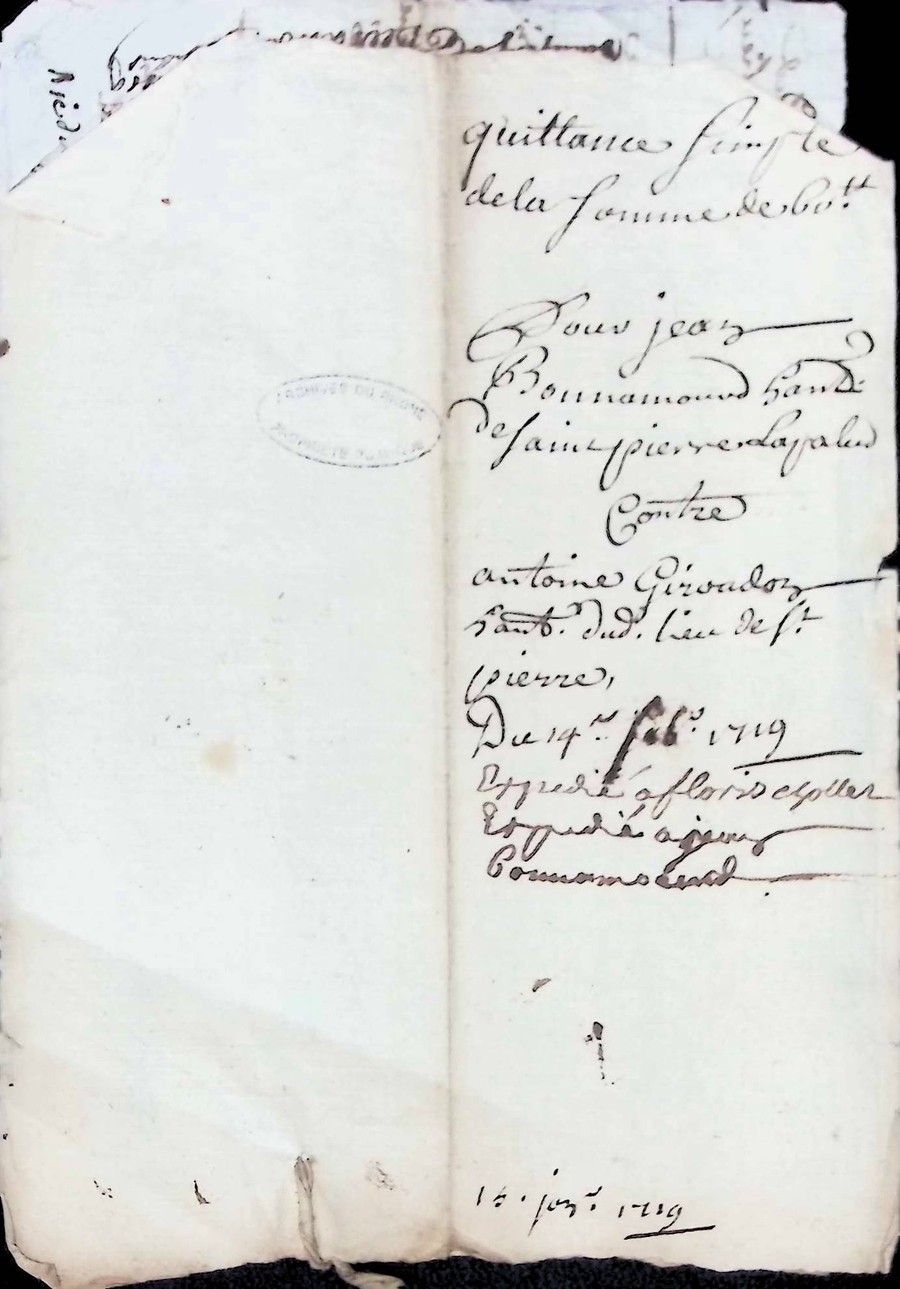 quittance simple
de la somme de 60.tt
Pour jean
Bonnamourd hant.
de Saint pierre Lapalud
Contre
antoine Giroudon
hant. dud. lieu de St
pierre,
Du 14.e 1719
Expedié a
Expedié a jean
Bonnamourd
ARCHIVES DU RHONE
15. janr. 1719